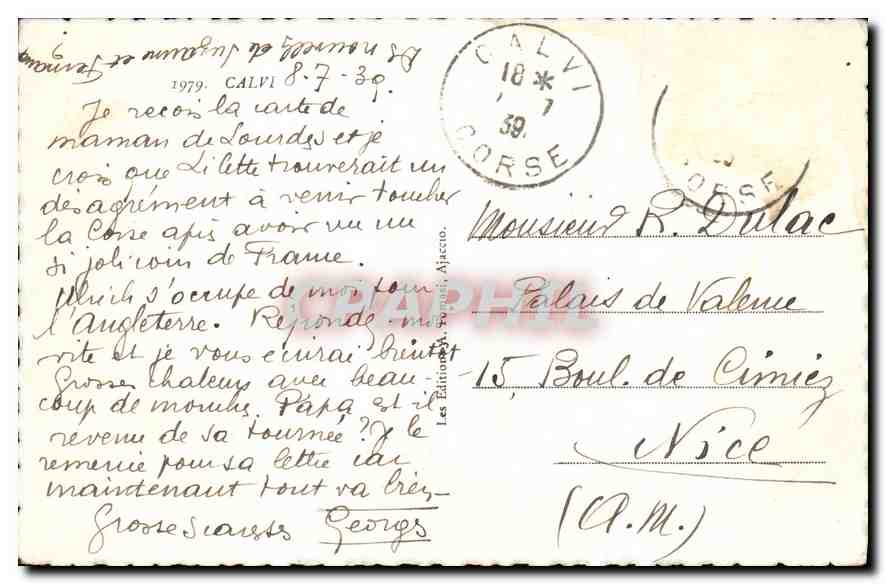 De nouvelles de Suzanne et Fernand
1979. CALVI 8-7-39.
Je reçois la carte de
maman de Lourdes et je
crois que Lilette trouverait un
désagrément à venir toucher
la Corse après avoir vu un
si joli coin de France.
Ulrich s'occupe de moi pour
l'Angleterre. Répondez-moi
vite et je vous écrirai bientôt
Grosses chaleurs avec beau-
coup de monde. Papa est il
revenu de sa tournée? Je le
remercie pour sa lettre car
maintenant tout va bien-
Grosses
Georges
Les Editions A. Tomasi, Ajaccio.
CALVI
18 *
7
39
CORSE
CORSE
Monsieur R. Dulac
Palais de Valence
15, Boul. de Cimiez
Nice
(A.M.)
CPAPHIL